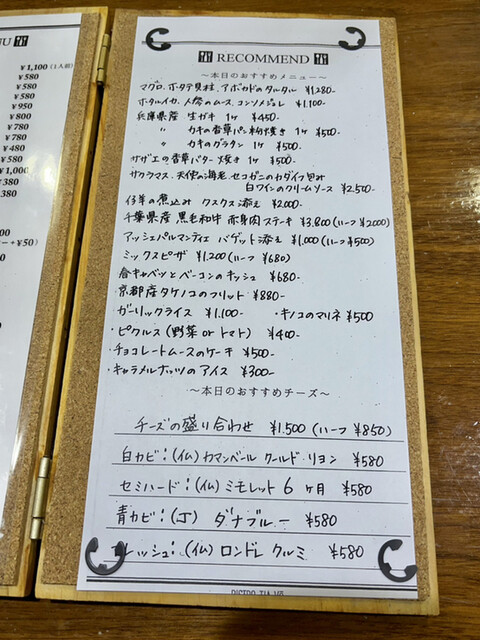 NU
¥1,100(1人前)
¥580
¥580
¥580
¥950
¥800
¥780
¥480
¥780
¥580
¥380
+¥50)
RECOMMEND
～本日のおすすめメニュー～
マグロ、ホタテ貝柱、アボカドのタルタル ¥1,280-
ホタルイカ、人参のムース、コンソメジュレ ¥1,100-
兵庫県産 生ガキ 1ケ ¥450-
〃 カキの香草パン粉焼き 1ケ ¥500-
〃 カキのグラタン 1ケ ¥500-
サザエの香草バター焼き 1ケ ¥500-
サクラマス、天使の海老、セコガニのカダイフ包み
白ワインのクリームソース ¥2,500-
仔羊の煮込み クスクス添え ¥2,000-
千葉県産 黒毛和牛 赤身肉ステーキ ¥3,800(ハーフ ¥2,000)
アッシェパルマンティエ バゲット添え ¥1,000(ハーフ ¥500)
ミックスピザ ¥1,200(ハーフ ¥680)
春キャベツとベーコンのキッシュ ¥680-
京都産タケノコのフリット ¥880-
ガーリックライス ¥1,100- ・キノコのマリネ ¥500
・ピクルス(野菜 or トマト) ¥400-
・チョコレートムースのケーキ ¥500-
・キャラメルナッツのアイス ¥300-
～本日のおすすめチーズ～
チーズの盛り合わせ ¥1,500(ハーフ ¥850)
白カビ:(仏)カマンベール クールド リヨン ¥580
セミハード:(仏)ミモレット 6ヶ月 ¥580
青カビ:(丁)ダナブルー ¥580
レッシュ:(仏)ロンドレ クルミ ¥580